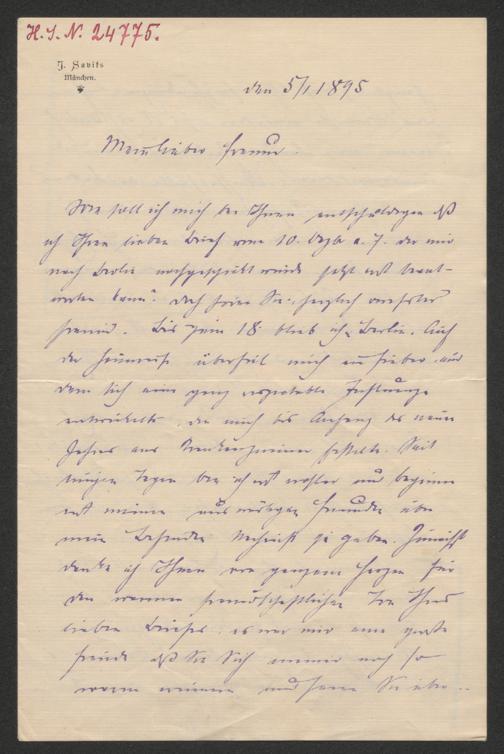 H. I. N. 24775.
J. Savits
München.
den 5/1 1895
Mein lieber Freund.
Wie soll ich mich bei Ihnen entschuldigen daß
ich Ihren lieben Brief vom 10. Dezb v. J. der mir
nach Berlin nachgeschickt wurde jetzt erst beant-
worten kann? Doch hören Sie, herzlich verehrter
Freund. Bis zum 18. blieb ich in Berlin. Auf
der Heimreise überfiel mich ein Fieber aus
dem sich eine ganz respectable Influenza
entwickelte, die mich bis Anfang des neuen
Jahres ans Krankenzimmer fesselte. Seit
einigen Tagen bin ich erst wohler und beginne
erst meinen auswärtigen Freunden über
mein Befinden Nachricht zu geben. Zunächst
danke ich Ihnen von ganzem Herzen für
den warmen freundschaftlichen Ton Ihres
lieben Briefes, es war mir eine große
Freude daß Sie Sich meiner noch so
warm erinnern und seien Sie über